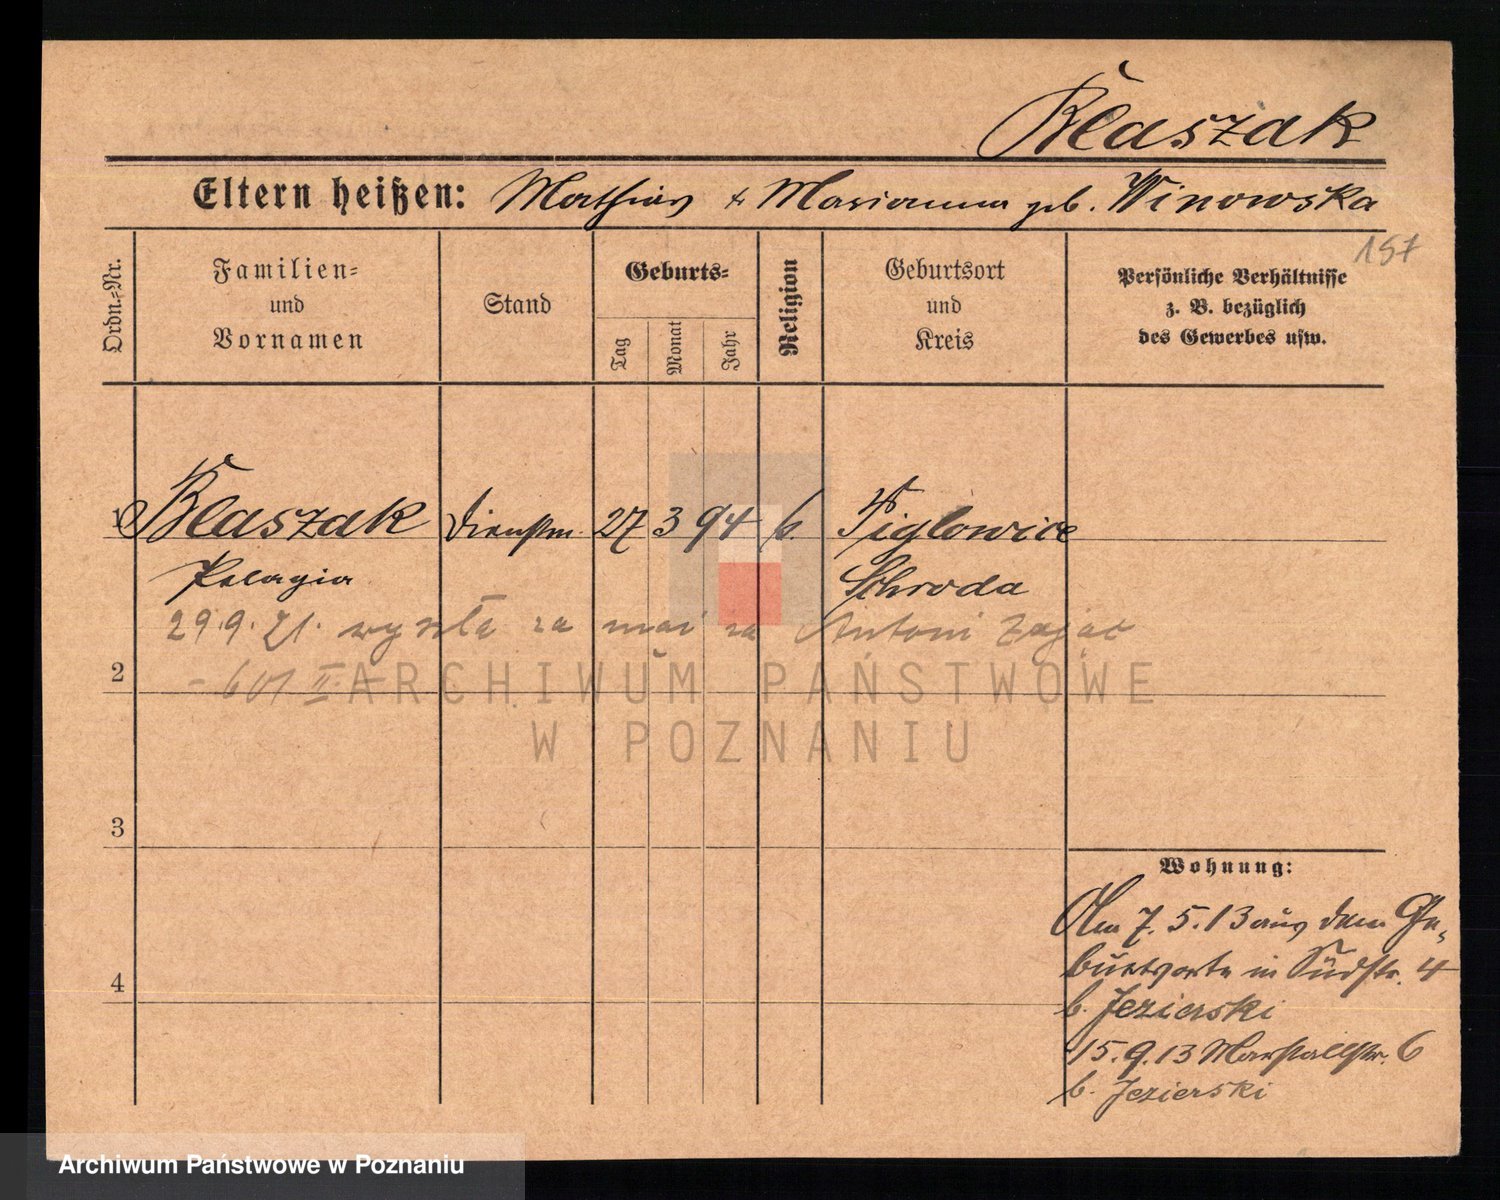 Blaszak
Eltern heißen: Mathias & Marianna geb. Winowska
157
Ordn.=Nr.
Familien=
und
Vornamen
Stand
Geburts=
Tag
Monat
Jahr
Religion
Geburtsort
und
Kreis
Persönliche Verhältnisse
z. B. bezüglich
des Gewerbes usw.
1 Blaszak Dienstm. 27 3 94 k. Piglowice
Pelagia Schroda
29.9.21. wyszła za mąż za Antoni Zając
2
ARCHIWUM PAŃSTWOWE
W POZNANIU
3
Wohnung:
Am 7.5.13 aus dem Ge-
burtsorte in Südstr. 4
b. Jezierski
4
15.9.13 Marstallstr. 6
b. Jezierski
Archiwum Państwowe w Poznaniu